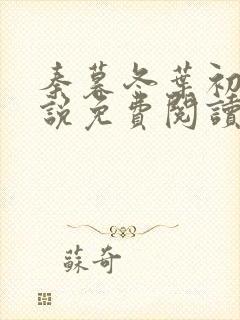 秦慕冬葉初
說免費閱讀
蘇奇